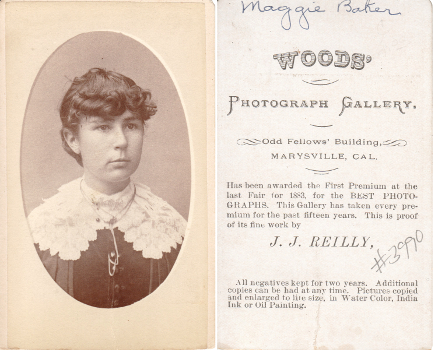 Maggie Baker
WOODS'
PHOTOGRAPH GALLERY.
Odd Fellows' Building,
MARYSVILLE, CAL.
Has been awarded the First Premium at the
last Fair for 1883, for the BEST PHOTO-
GRAPHS. This Gallery has taken every pre-
mium for the past fifteen years. This is proof
of its fine work by
J. J. REILLY,
#3990
All negatives kept for two years. Additional
copies can be had at any time. Pictures copied
and enlarged to life size, in Water Color, India
Ink or Oil Painting.